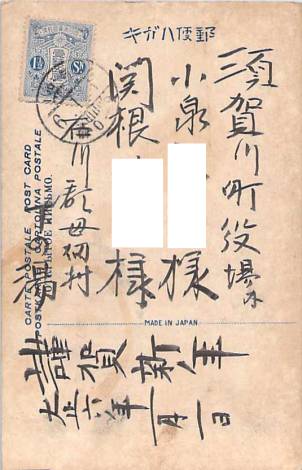 郵便ハガキ
須賀川町役場内
小泉
様
関根
様
石川郡母畑村
謹賀新年
大正六年一月一日
1½ Sn
CARTE POSTALE POST CARD
CARTOLINA POSTALE
MADE IN JAPAN